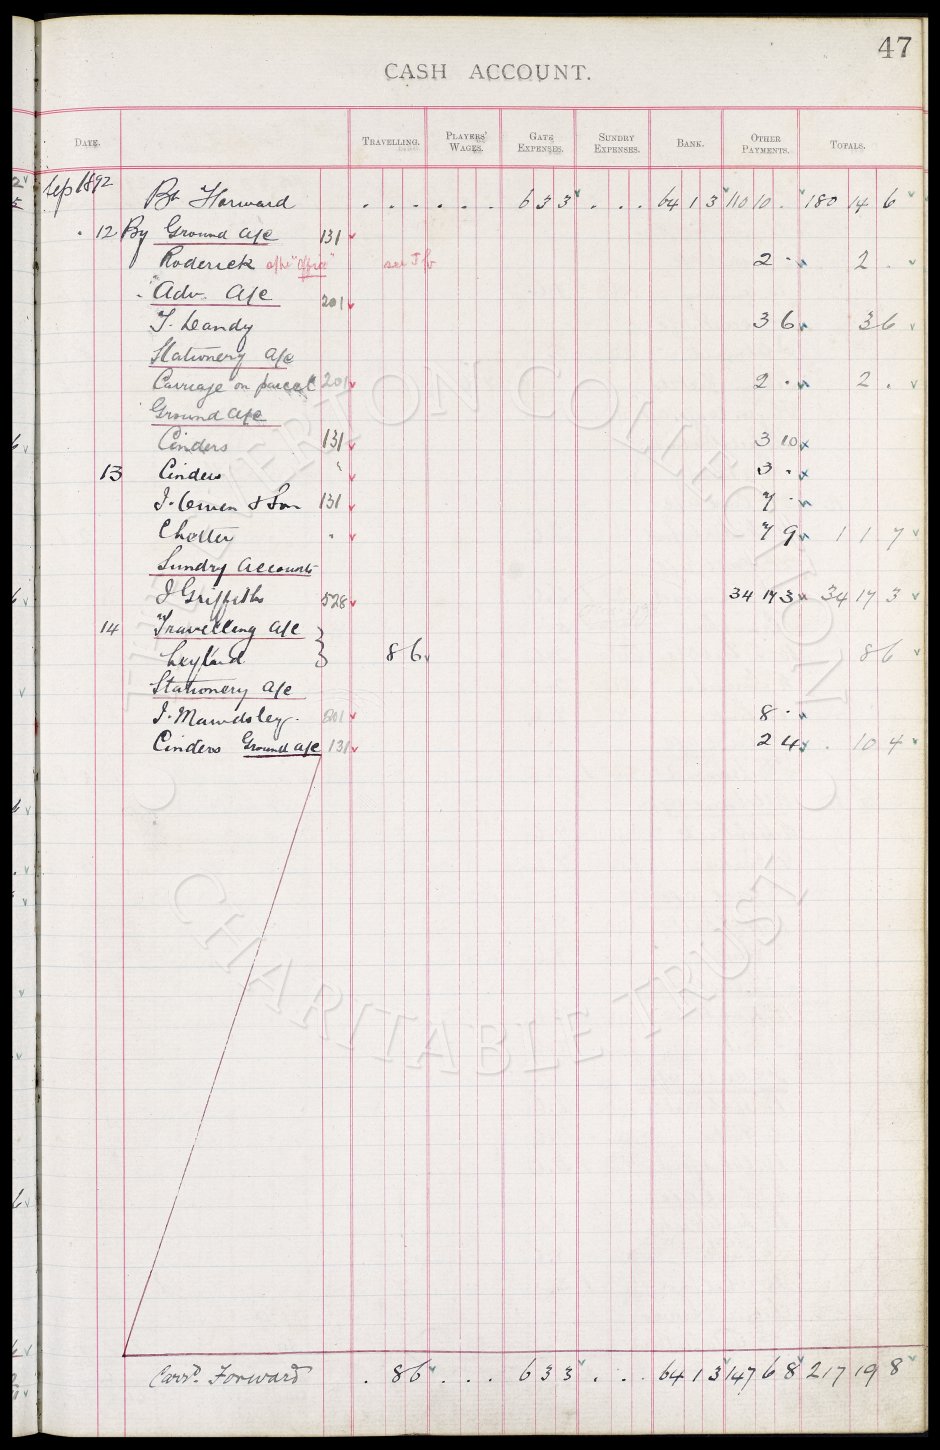 47
CASH ACCOUNT.
DATE. TRAVELLING. PLAYERS' WAGES. GATE EXPENSES. SUNDRY EXPENSES. BANK. OTHER PAYMENTS. TOTALS.
Sep 1892 Bt Forward . . . . . . 6 3 3 . . . 64 1 3 110 10 . 180 14 6
12 By Ground a/c 131
Roderick "Office" see J/b 2 . 2 .
Adv. a/c 201
T. Dandy 3 6 3 6
Stationery a/c
Carriage on parcel 201 2 . 2 .
Ground a/c
Cinders 131 3 10
13 Cinders " 3 .
J. Owen & Son 131 7 .
. 7 9 1 1 7
Sundry Accounts
J Griffiths 528 34 17 3 34 17 3
14 Travelling a/c
Leyland 8 6 8 6
Stationery a/c
J. Mawdsley. 201 8 .
Cinders Ground a/c 131 2 4 . 10 4
Carrd. Forward . 8 6 . . . 6 3 3 . . . 64 1 3 147 6 8 217 19 8
THE EVERTON COLLECTION
CHARITABLE TRUST